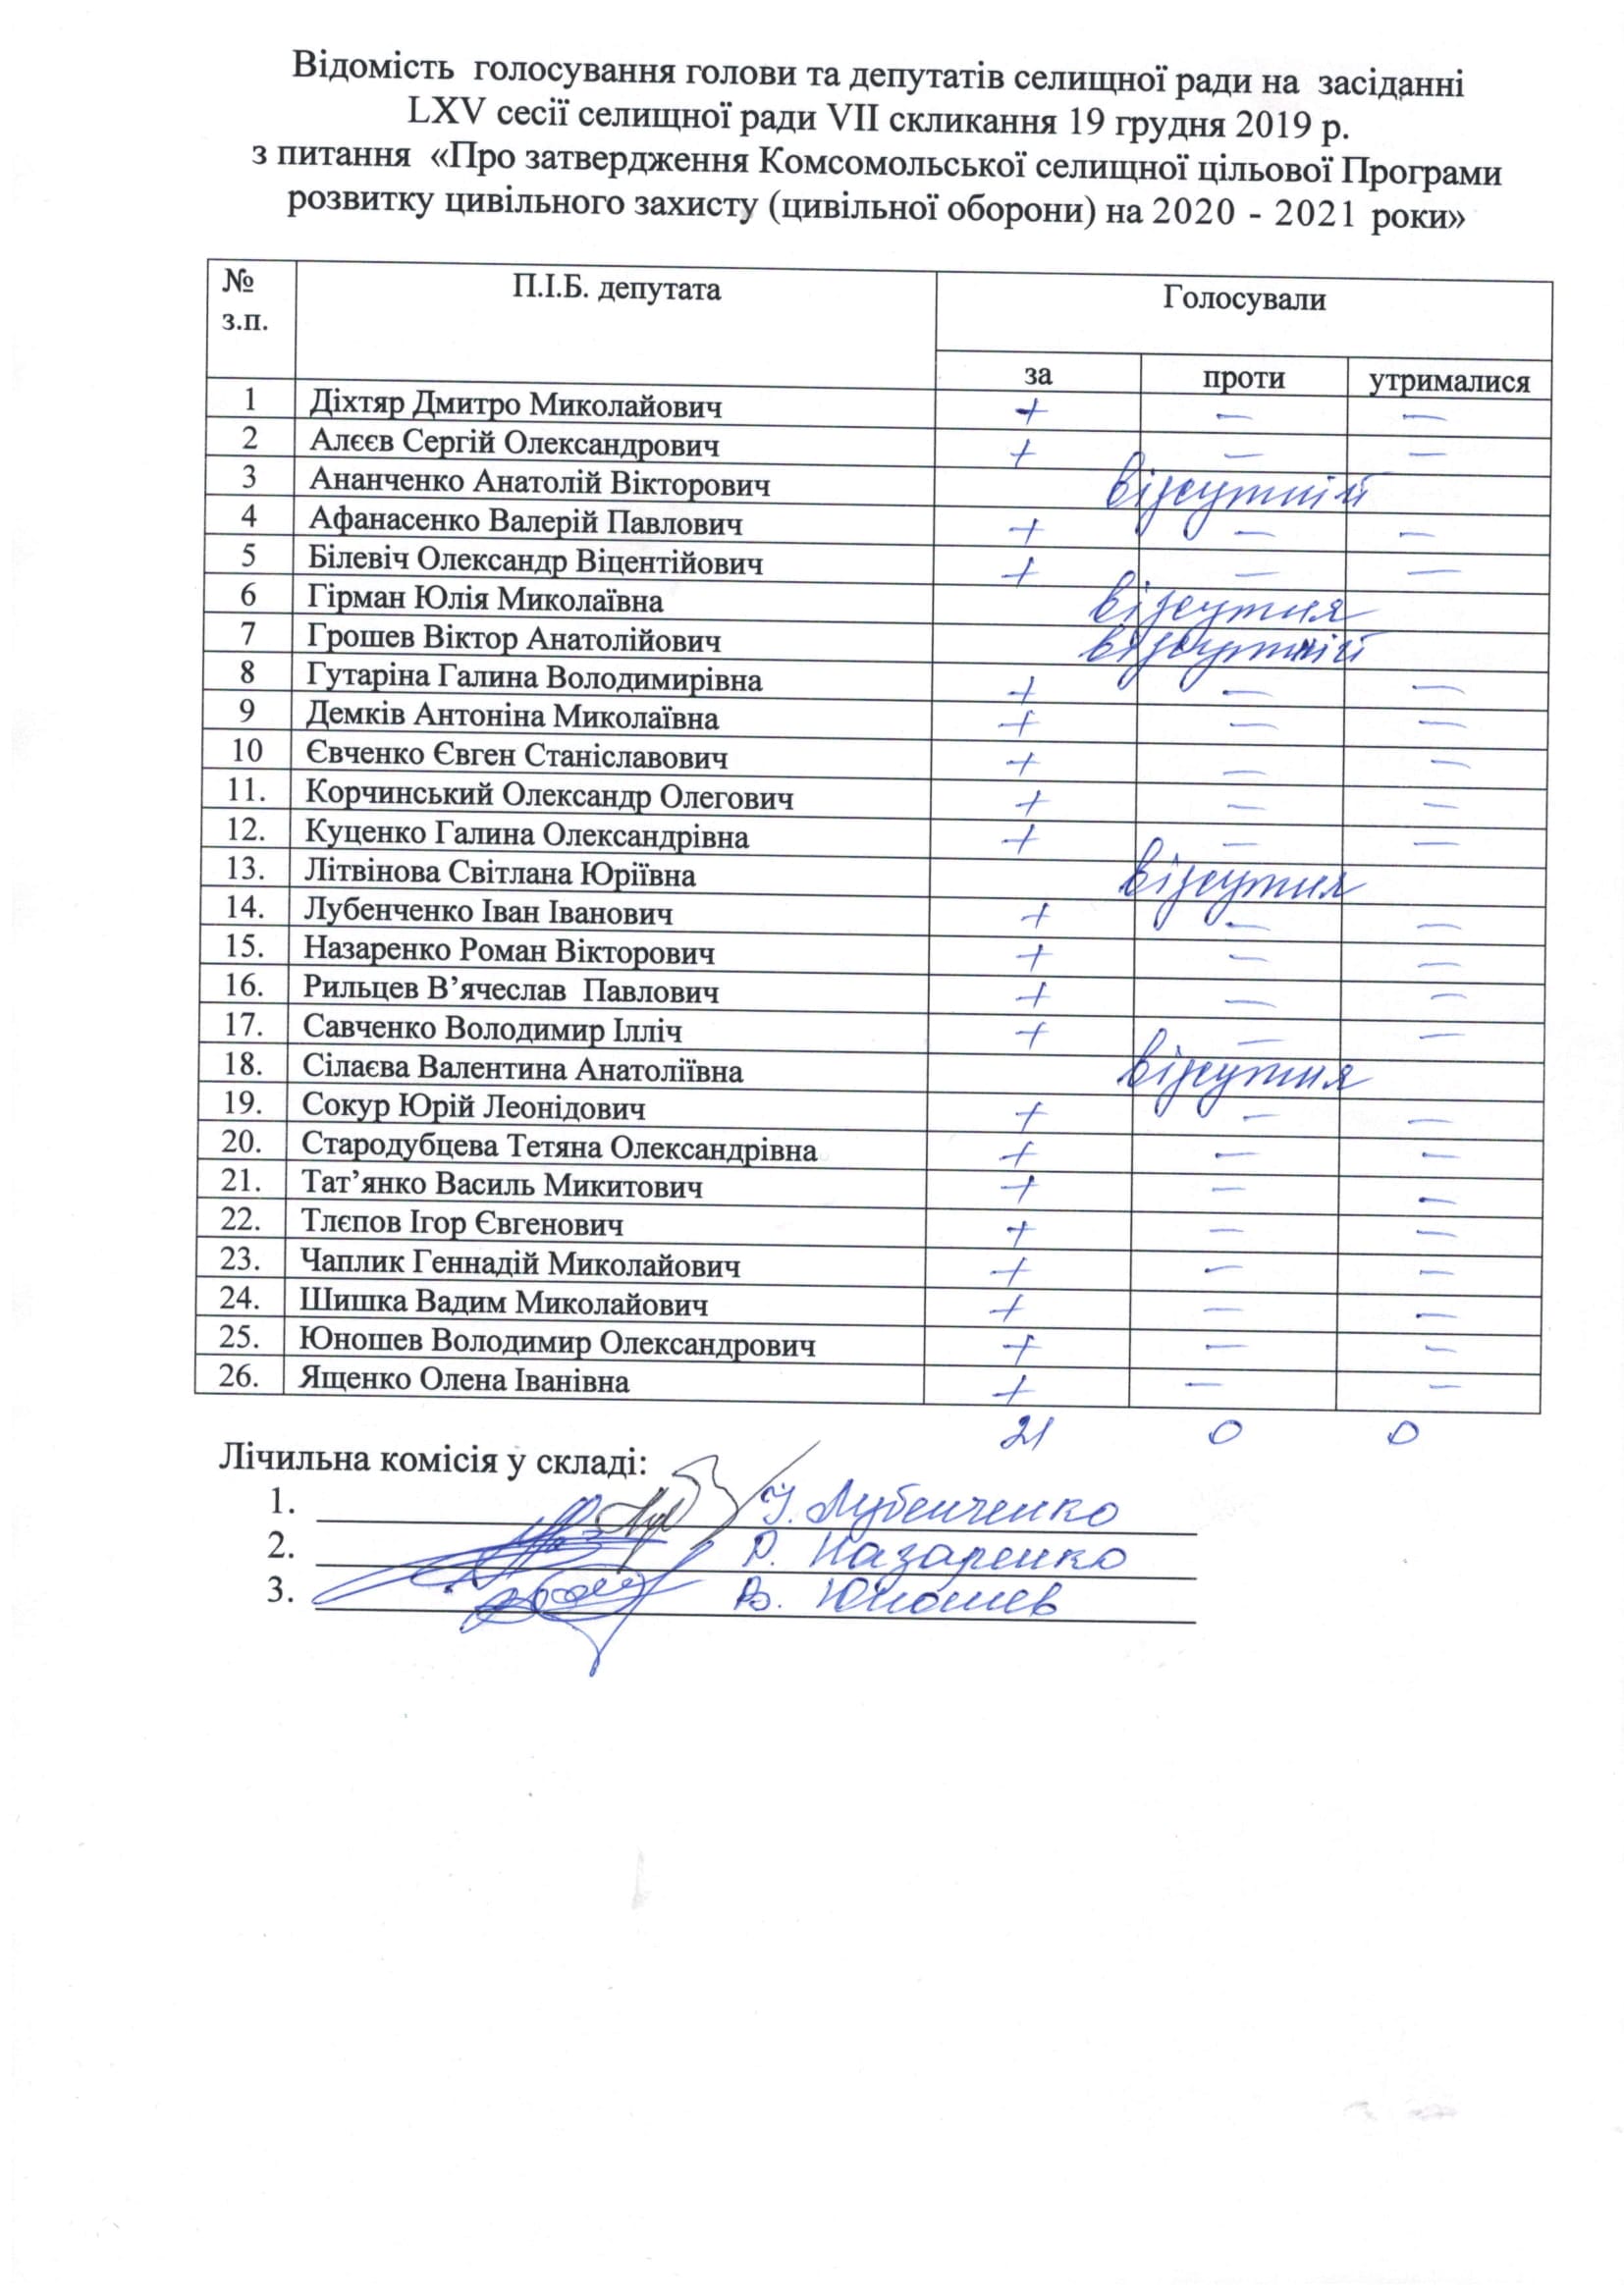 Відомість голосування голови та депутатів селищної ради на засіданні
LXV сесії селищної ради VII скликання 19 грудня 2019 р.
з питання «Про затвердження Комсомольської селищної цільової Програми
розвитку цивільного захисту (цивільної оборони) на 2020 - 2021 роки»
№ з.п. П.І.Б. депутата Голосували
за проти утрималися
1 Діхтяр Дмитро Миколайович + — —
2 Алєєв Сергій Олександрович + — —
3 Ананченко Анатолій Вікторович відсутній
4 Афанасенко Валерій Павлович + — —
5 Білевіч Олександр Віцентійович + — —
6 Гірман Юлія Миколаївна відсутня
7 Грошев Віктор Анатолійович відсутній
8 Гутаріна Галина Володимирівна + — —
9 Демків Антоніна Миколаївна + — —
10 Євченко Євген Станіславович + — —
11. Корчинський Олександр Олегович + — —
12. Куценко Галина Олександрівна + — —
13. Літвінова Світлана Юріївна відсутня
14. Лубенченко Іван Іванович + — —
15. Назаренко Роман Вікторович + — —
16. Рильцев В’ячеслав Павлович + — —
17. Савченко Володимир Ілліч + — —
18. Сілаєва Валентина Анатоліївна відсутня
19. Сокур Юрій Леонідович + — —
20. Стародубцева Тетяна Олександрівна + — —
21. Тат’янко Василь Микитович + — —
22. Тлєпов Ігор Євгенович + — —
23. Чаплик Геннадій Миколайович + — —
24. Шишка Вадим Миколайович + — —
25. Юношев Володимир Олександрович + — —
26. Ященко Олена Іванівна + — —
21 0 0
Лічильна комісія у складі:
1. І. Лубенченко
2. Р. Назаренко
3. В. Юношев